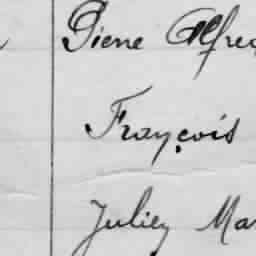 Piene Alfred
François
Julien Mar